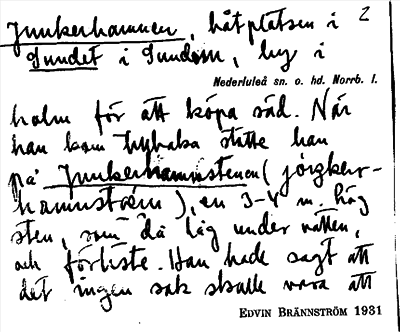 Junkerhamnen, båtplatsen i 2
Sundet i Sundom, by i
Nederluleå sn. o. hd. Norrb. l.
holm för att köpa säd. När
han kom tillbaka stötte han
på Junkerhamnstenen (
hamnstæin), en 3-4 m. hög
sten, som då låg under vatten,
och förliste. Han hade sagt att
det ingen sak skulle vara att
EDVIN BRÄNNSTRÖM 1931